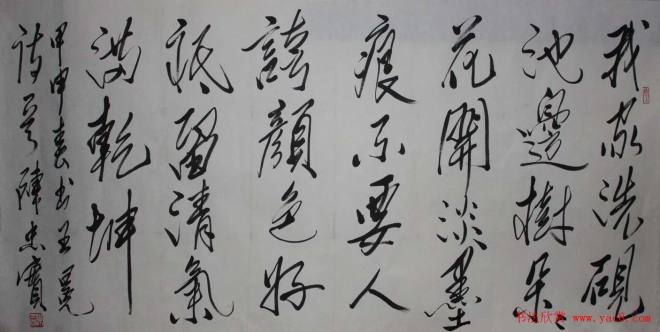 我家洗硯
池邊樹朵
花開淡墨
痕不要人
誇顏色好
祇留清氣
滿乾坤
甲申春书王冕
詩
忠寶
书法欣赏 www.yac8.com